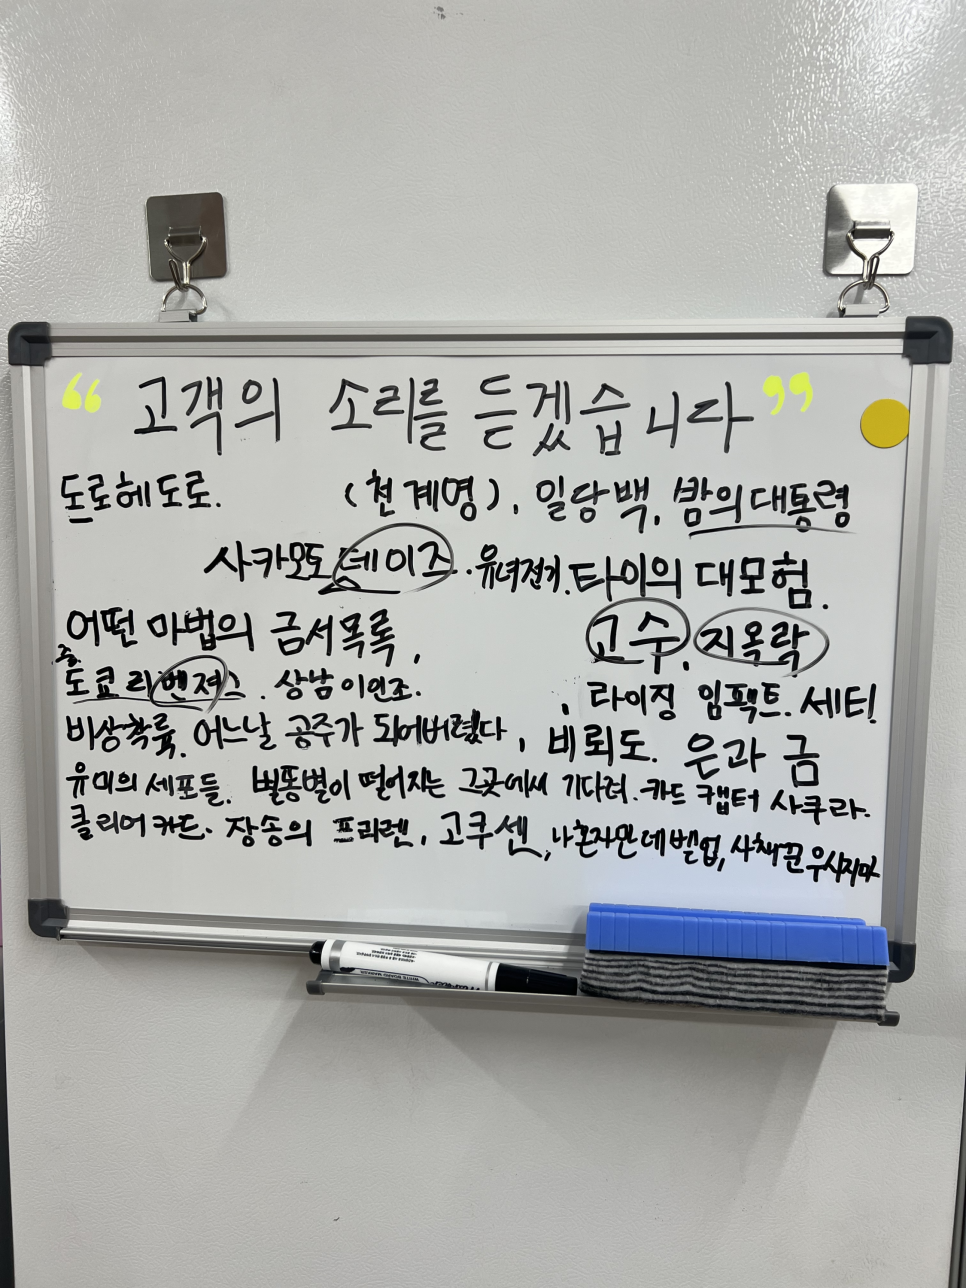 “ 고객의 소리를 듣겠습니다 ”
도로헤도로. (천계영), 일당백, 밤의대통령
사카모토 데이즈. 유녀전기. 타이의 대모험.
어떤 마법의 금서목록, 고수, 지옥락
도쿄 리벤져스. 상남이인조. , 라이징 임팩트. 세티!
비상착륙. 어느날 공주가 되어버렸다, 비뢰도. 은과 금
유미의 세포들. 별똥별이 떨어지는 그곳에서 기다려. 카드 캡터 사쿠라.
클리어카드. 장송의 프리렌, 고쿠센, 나혼자만 레벨업, 사채꾼 우시지마
WHITE BOARD MARKER